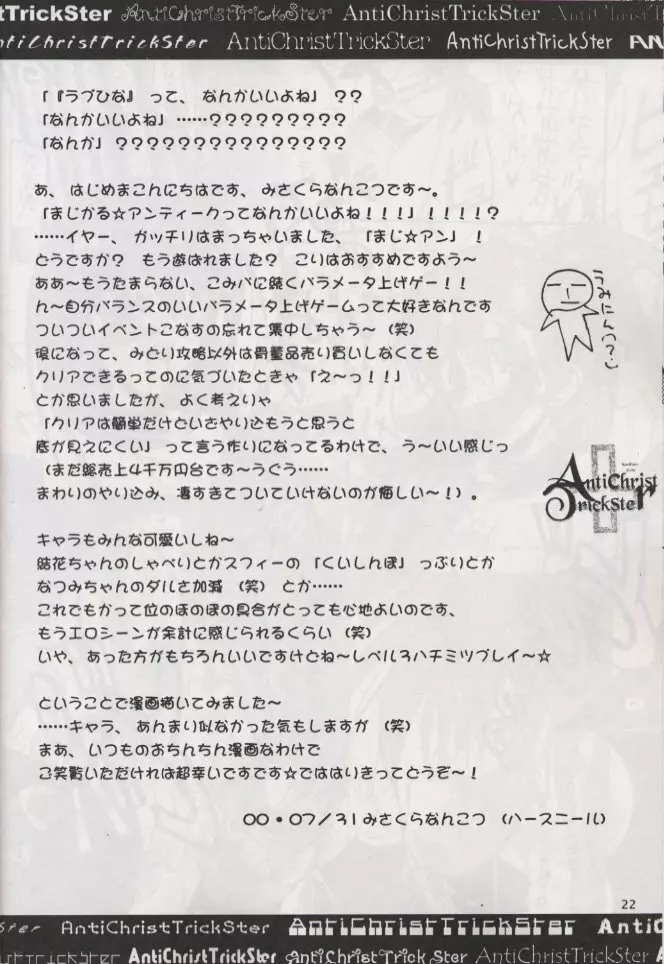 tTrickSter AntiChristTrickSter AntiChristTrickSter
ntiChristTrickSter AntiChristTrickSter AntiChristTrickSter AN
「『ラブひな』って、なんかいいよね」??
「なんかいいよね」……?????????
「なんか」???????????????
あ、はじめまこんにちはです、みさくらなんこつです〜。
「まじかる☆アンティークってなんかいいよね!!!」!!!!?
……イヤー、ガッチリはまっちゃいました、「まじ☆アン」!
どうですか? もう遊ばれました? こりはおすすめですよう〜
ああ〜もうたまらない、こみパに続くパラメータ上げゲー!!
ん〜自分バランスのいいパラメータ上げゲームって大好きなんです
ついついイベントこなすの忘れて集中しちゃう〜(笑)
後になって、みどり攻略以外は骨董品売り買いしなくても
クリアできるってのに気づいたときゃ「え〜っ!!」
とか思いましたが、よく考えりゃ
「クリアは簡単だけどいざやり込もうと思うと
底が見えにくい」って言う作りになってるわけで、う〜いい感じっ
(まだ総売上4千万円台です〜うぐう……
まわりのやり込み、凄すぎてついていけないのが悔しい〜!)。
うみにんっ?
AntiChrist
TrickSter
キャラもみんな可愛いしね〜
結花ちゃんのしゃべりとかスフィーの「くいしんぼ」っぷりとか
なつみちゃんのダルさ加減(笑)とか……
これでもかって位のほのぼの具合がとっても心地よいのです、
もうエロシーンが余計に感じられるくらい(笑)
いや、あった方がもちろんいいですけどね〜レベル3ハチミツプレイ〜☆
ということで漫画描いてみました〜
……キャラ、あんまり似なかった気もしますが(笑)
まあ、いつものおちんちん漫画なわけで
ご笑覧いただければ超幸いですです☆でははりきってどうぞ〜!
00・07/31みさくらなんこつ(ハースニール)
22
Ster AntiChristTrickSter AntiChristTrickSter AntiC
istTrickSter AntiChristTrickSter AntiChristTrickSter AntiChristTrickSter